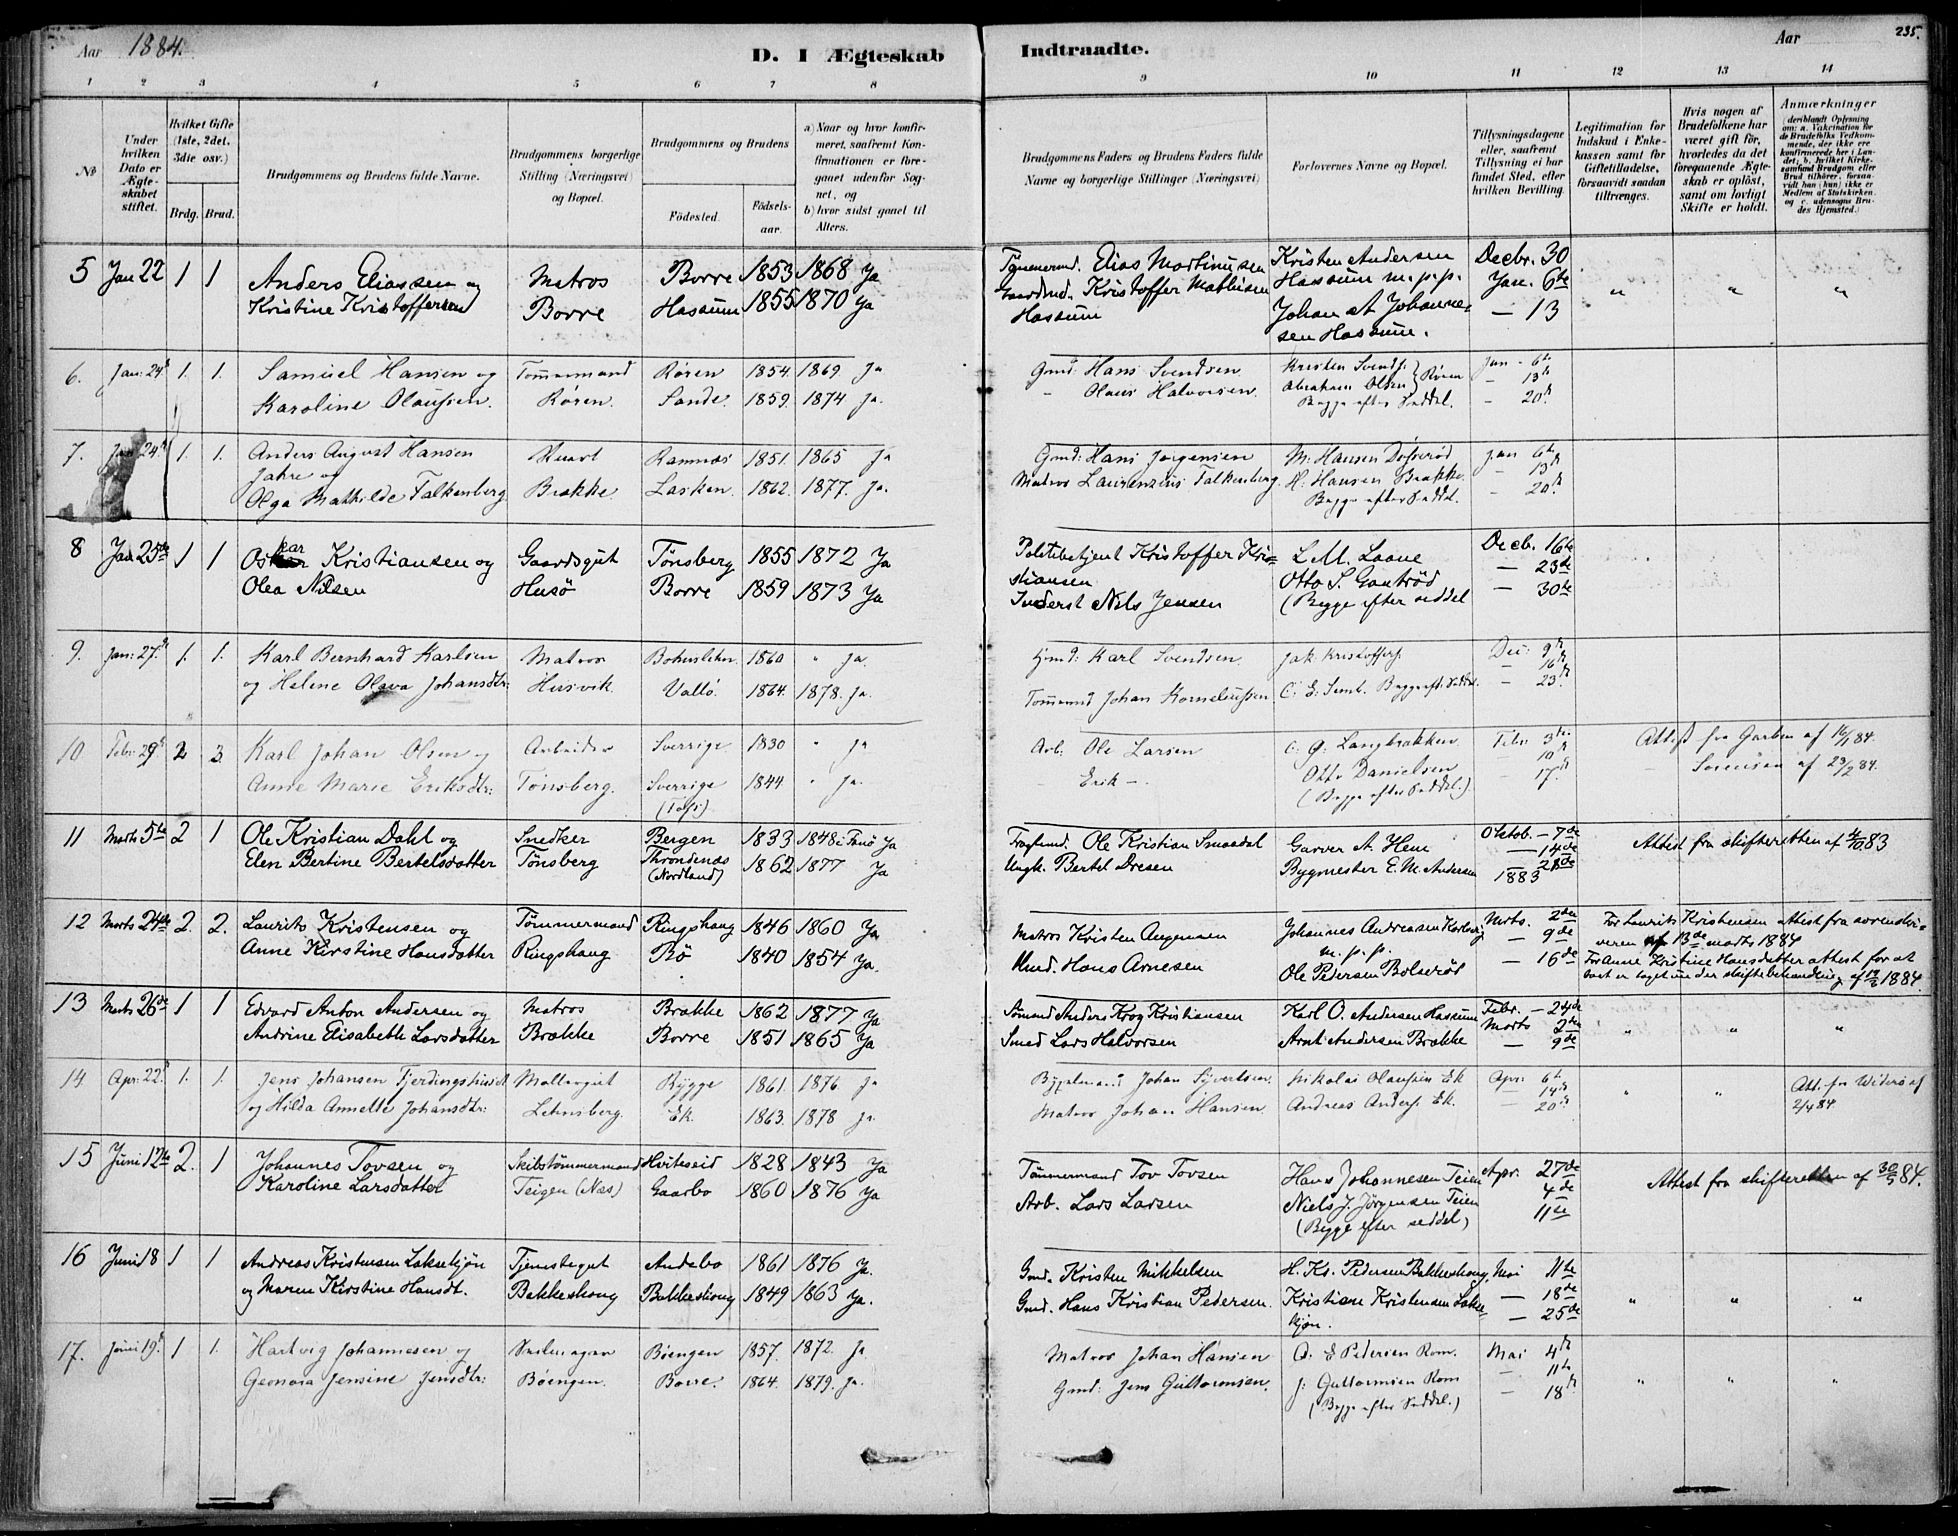 Aar 1884.
D. I Ægteskab Indtraadte.
Aar
235.
1 2 3 4 5 6 7 8 9 10 11 12 13 14
No
Under hvilken Dato er Ægteskabet stiftet.
Hvilket Gifte (1ste, 2det, 3die osv.)
Brdg. Brud.
Brudgommens og Brudens fulde Navne.
Brudgommens borgerlige Stilling (Næringsvei) og Bopæl.
Brudgommens og Brudens
Födested.
Födsels-aar.
a) Naar og hvor konfirmeret, saafremt Konfirmationen er foregaaet udenfor Sognet, og
b) hvor sidst gaaet til Alters.
Brudgommens Faders og Brudens Faders fulde Navne og borgerlige Stillinger (Næringsvei)
Forlovernes Navne og Bopæl.
Tillysningsdagene eller, saafremt Tillysning ei har fundet Sted, efter hvilken Bevilling.
Legitimation for Indskud i Enkekassen samt for Giftetilladelse, forsaavidt saadan tiltrænges.
Hvis nogen af Brudefolkene har været gift før, hvorledes da det foregaaende Ægteskab er oplöst, samt om lovligt Skifte er holdt.
Anmærkninger (deriblandt Oplysning om: a. Vakcination for de Brudefolks Vedkommende, der ikke ere konfirmerede her i Landet; b. hvilket Kirkesamfund Brudgom eller Brud tilhörer, forsaavidt han (hun) ikke er Medlem af Statskirken, og c. udensogns Brudes Hjemsted.)
5 Jan 22 1 1 Anders Eliassen og Matros Borre 1853 1868 Ja Elias Martinusen Kristen Andersen Decbr. 30
Kristine Kristoffersen Borre Hassum 1855 1870 Ja Gaardmd. Kristoffer Mathisen Hassum m.p.p. Jan. 6te " " "
Hassum Johan A Johanne- — 13
sen Hassum.
6. Jan: 24d 1. 1. Samuel Hansen og Tømmermand Røren 1854. 1869 Ja Gmd: Hans Svendsen Kristen Svends. Jan - 6te
Karoline Olaussen. Røren. Sande. 1859. 1874 ja. - Olaus Halvorsen. Abraham Olsen } Røren - 13de
Begge efter Seddel. - 20d.
7. 24d 1. 1. Anders August Hansen Ramnæs 1851. 1865 Ja Gmd: Hans Jørgensen M. Hansen Jan 6te
Jahre og - 13d
Olga Mathilde Falkenberg Brække Lasken. 1862. 1877. Ja. Matros Laurenzius Falkenberg. H. Hansen Brække - 20d
Begge efter Seddel.
8 Jan 25te 1 1 Oskar Kristiansen og Gaardsgut Tønsberg 1855 1872 Ja Politibetjent Kristoffer Kri= L.M. Laane Decb. 16te
Olea Nilsen Husö Borre 1859 1873 Ja stiansen Otto S. Gautröd — 23de
Inderst Niels Jensen (Begge efter seddel — 30te
9. Jan: 27.d 1. 1. Karl Bernhard Karlsen Matros Bohuslehn 1860 " ja. Gmd: Karl Svendsen. Jak: Kristoffers. Dec: 9d
og Helene Olava Johansdtr: Husvik. Vallö. 1864. 1878. ja. Tømmermd Johan Korneliussen C. E. Semb. Begge eft. Seddel. - 16d
- 23d.
10 Febr: 29d 2 3. Karl Johan Olsen og Arbeider Sverrige 1830 " ja Arb: Ole Larsen C. G. Langbrækken Febr 3te Attest fra Garben af 16/1 84.
Anne Marie Eriksdtr: Tønsberg. Sverrige 1844 " ja. Erik —. Otto Danielsen - 10d Sorensen af 23/2 84.
(Begge efter Seddel.) - 17.d
11 Marts 5te 2 1 Ole Kristian Dahl og Snedker Bergen 1833 1848 i Ja Ole Kristian Smaadal Garver A. Hem Oktob. - 7de Attest fra skifteretten af 4/10 83
Elen Bertine Bertelsdatter Tønsberg Throndenæs 1862 1877 Ja Ungk. Bertel Dresen Bygmester E. M. Andersen — 14de
(Nordland) 1883 28de
12 Marts 24de 2. 2. Laurits Kristensen og Tømmermand Ringshaug 1846 1860 Ja Matros Kristen Johannes Andreasen Karlsvig Marts. 2den For Laurits Kristensen attest fra sorenskri=
Anne Kirstine Hansdatter Ringshaug Bö 1840 1854 Ja. Hans Arnesen m.p.p. — 9de veren af 13de marts 1884
Ole Pedersen Bolseröd — 16de For Anne Kristine Hansdatter attest for at
boet er taget under skiftebehandling af 1884.
13 Marts 26de 1 1 Edvard Anton Andersen og Matros Brække 1862 1877 Ja Sömand Anders Krog Kristiansen Karl O. Andersen Hassum Febr. - 24de
Andrine Elisabeth Larsdatter Brække Borre 1851 1865 Ja Smed Lars Halvorsen Arnt Andersen Brække Marts 2den " " "
— 9de
14 Apr: 22d 1. 1. Jens Johansen Fjerdingshus Møllergut Rygge 1861. 1876 ja Johan Syvertsen. Nikolai Olaussen Ek Apr: 6te " " Att. fra Widerö af
og Hilda Annette Johansdtr: Lehnsberg. Ek. 1863. 1878 ja. Matros Johan Hansen. Andreas Anders. Ek. - 14d 2/4 84.
- 20d
15 Juni 12te 2. 1 Johannes Tovsen og Skibstømmermand Hviteseid 1828 1843 Ja Tømmermand Tov Tovsen Hans Johannesen Teien Apr. 27de Attest fra skifteretten af 30/5 84.
Karoline Larsdatter Teigen (Næs) Gaarbo 1860 1876 Ja Arb. Lars Larsen Niels J. Jörgensen Teien 4de
(Begge efter seddel) 11te
16 Juni 18 1 1 Andreas Kristensen Laksekjön Tjenestegut Andebo 1861 1876 Ja. Gmd. Kristen Mikkelsen H. Kr. Pedersen Bakkeskoug. Mai 11te
og Maren Kirstine Hansdt. Bakkeskoug Bakkeskoug 1849 1863 Ja. Gmd. Hans Kristian Pedersen. Kristian Kristensen Lakse- — 18de " " "
kjön. — 25de
17. Juni 19d. 1 1. Hartvig Johannesen og Böengen 1857. 1872. Ja Matros Johan Hansen O. E Pedersen Rom. Mai 4d
Geonora Jensine Jensdtr: Böengen. Borre. 1864. 1879. Ja. Gmd: Jens Guttormsen. J: Guttormsen Rom — 11te " " "
(Begge efter Seddel.) — 18d